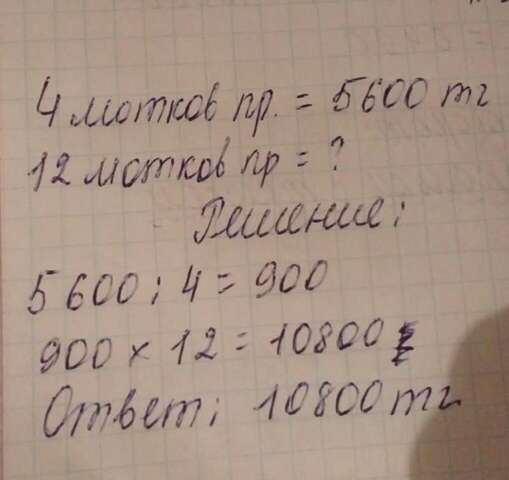 4 мотков пр. = 5600 тг
12 мотков пр = ?
Решение:
5 600 : 4 = 900
900 x 12 = 10800
Ответ: 10800 тг